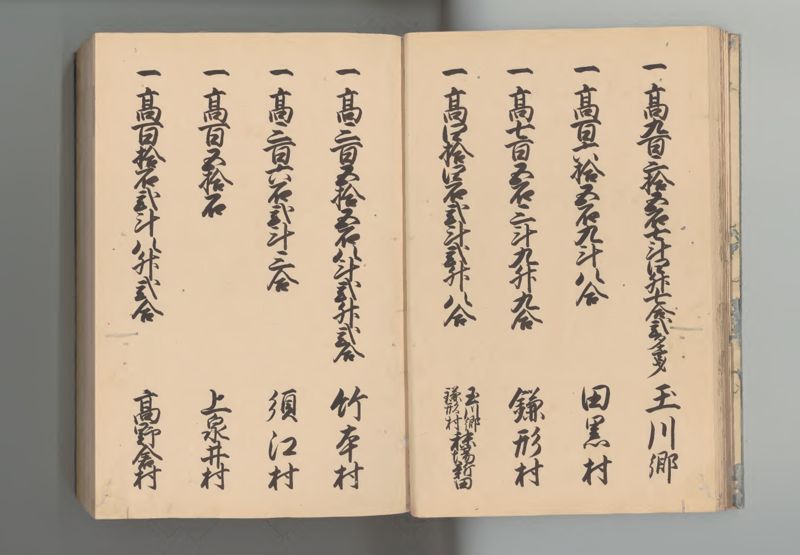 一 高九百六拾五石七斗四升七合弐 玉川郷
一 高百六拾五石九斗八合 田黒村
一 高七百五石三斗九升九合 鎌形村
一 高四拾四石弐斗弐升八合 玉川郷 鎌形村 新田
一 高三百五拾五石八斗弐升弐合 竹本村
一 高三百六石弐斗三合 須江村
一 高百五拾石 上泉井村
一 高百拾石弐斗八升弐合 高野倉村